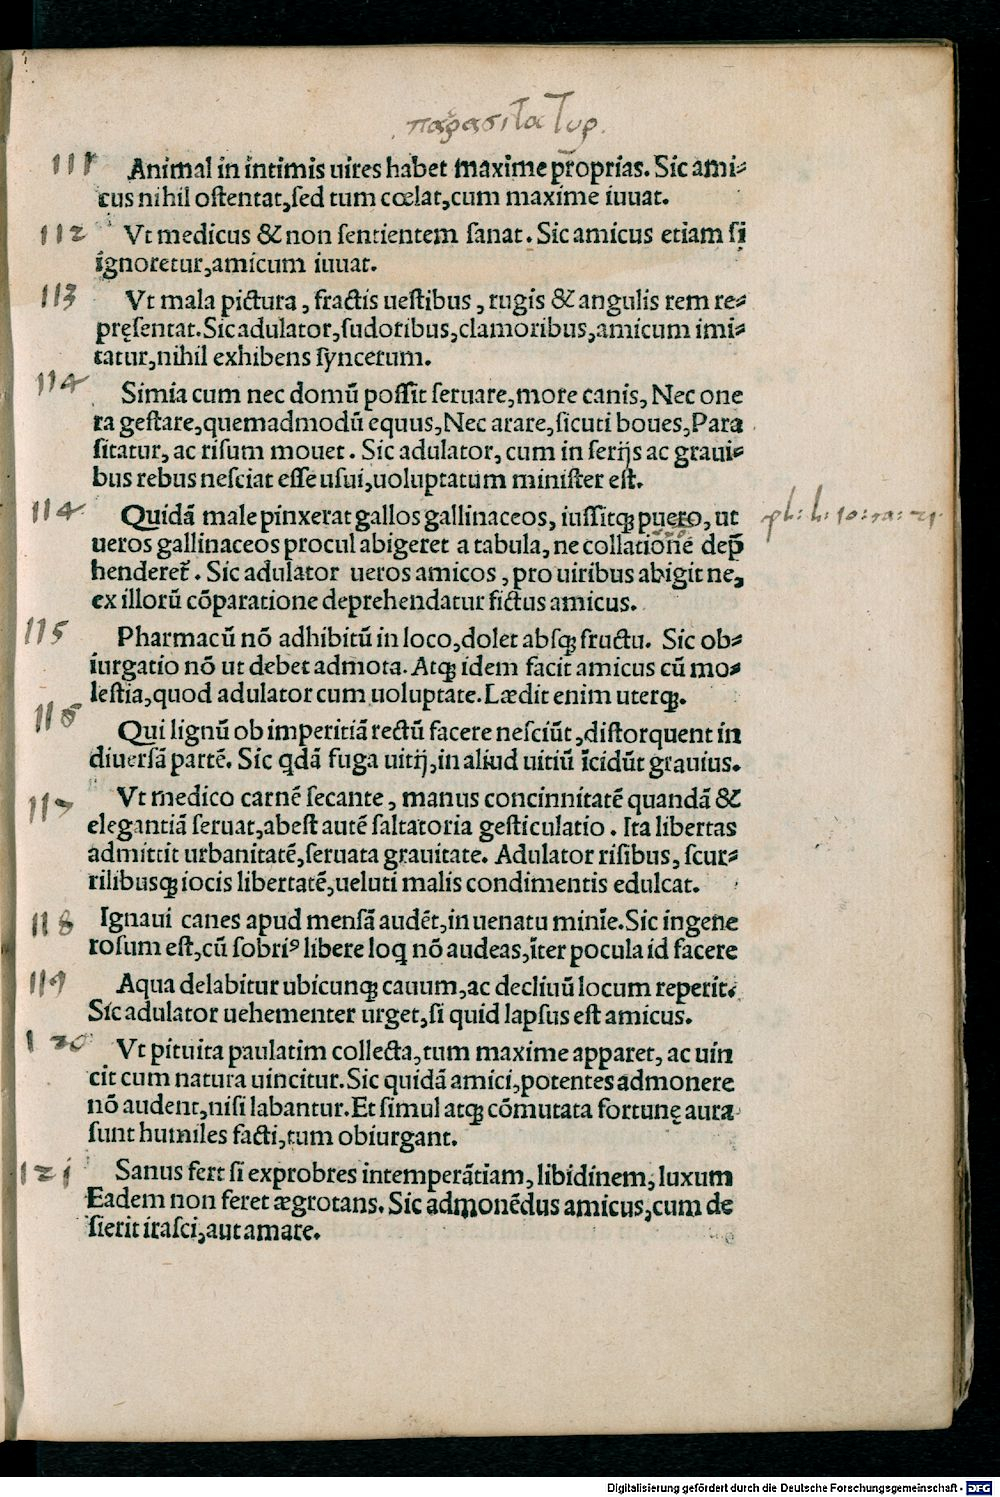 παρασιτατυρ.
111 Animal in intimis uires habet maxime proprias. Sic ami-
cus nihil ostentat, sed tum cœlat, cum maxime iuuat.
112 Vt medicus & non sentientem sanat. Sic amicus etiam si
ignoretur, amicum iuuat.
113 Vt mala pictura, fractis uestibus, rugis & angulis rem re-
pręsentat. Sic adulator, sudoribus, clamoribus, amicum imi-
tatur, nihil exhibens syncerum.
114 Simia cum nec domū possit seruare, more canis, Nec one
ra gestare, quemadmodū equus, Nec arare, sicuti boues, Para
sitatur, ac risum mouet. Sic adulator, cum in serijs ac graui-
bus rebus nesciat esse usui, uoluptatum minister est.
114 Quidā male pinxerat gallos gallinaceos, iussitqꝫ puero, ut
ueros gallinaceos procul abigeret a tabula, ne collatione dep̄
henderet̄. Sic adulator ueros amicos, pro uiribus abigit ne,
ex illorū cōparatione deprehendatur fictus amicus.
115 Pharmacū nō adhibitū in loco, dolet absqꝫ fructu. Sic ob-
iurgatio nō ut debet admota. Atqꝫ idem facit amicus cū mo-
lestia, quod adulator cum uoluptate. Lædit enim uterqꝫ.
116 Qui lignū ob imperitiā rectū facere nesciūt, distorquent in
diuersā partē. Sic qdā fuga uitij, in aliud uitiū īcidūt grauius.
117 Vt medico carnē secante, manus concinnitatē quandā &
elegantiā seruat, abest autē saltatoria gesticulatio. Ita libertas
admittit urbanitatē, seruata grauitate. Adulator risibus, scur-
rilibusqꝫ iocis libertatē, ueluti malis condimentis edulcat.
118 Ignaui canes apud mensā audēt, in uenatu minīe. Sic ingene
rosum est, cū sobriꝰ libere loq nō audeas, īter pocula id facere
119 Aqua delabitur ubicunqꝫ cauum, ac decliuū locum reperit.
Sic adulator uehementer urget, si quid lapsus est amicus.
120 Vt pituita paulatim collecta, tum maxime apparet, ac uin
cit cum natura uincitur. Sic quidā amici, potentes admonere
nō audent, nisi labantur. Et simul atqꝫ cōmutata fortunę aura
sunt humiles facti, tum obiurgant.
121 Sanus fert si exprobres intemperātiam, libidinem, luxum
Eadem non feret ægrotans. Sic admonēdus amicus, cum de
sierit irasci, aut amare.
Digitalisierung gefördert durch die Deutsche Forschungsgemeinschaft - DFG